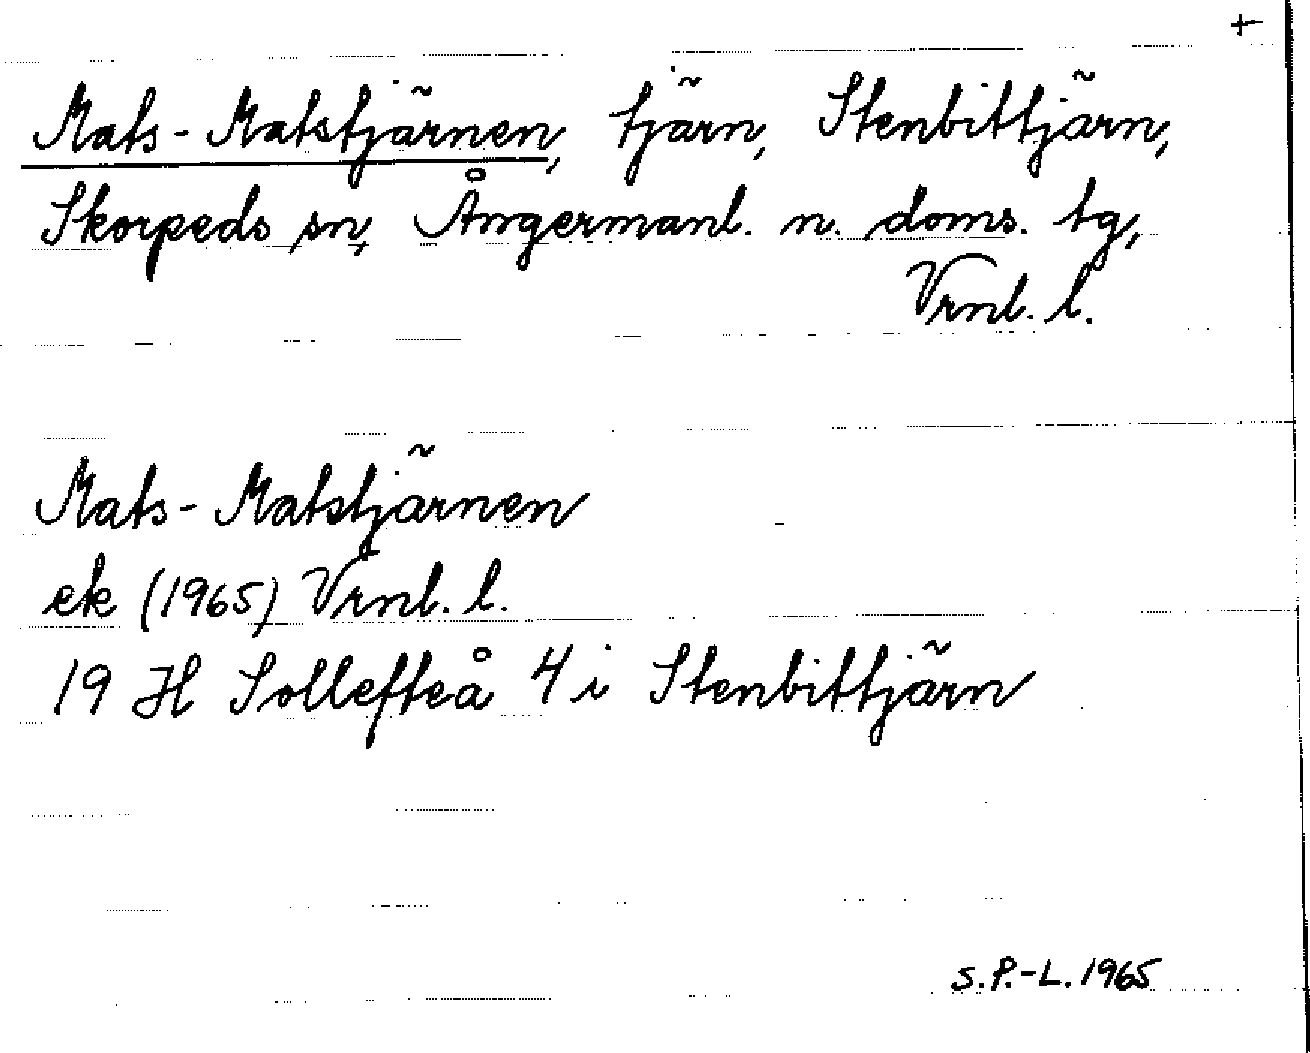 +
Mats-Matstjärnen, tjärn, Stenbittjärn,
Skorpeds sn, Ångermanl. n. doms. tg,
Vrnl. l.
Mats-Matstjärnen
ek (1965) Vrnl. l.
19 H Sollefteå 4 i Stenbittjärn
S.P.-L. 1965